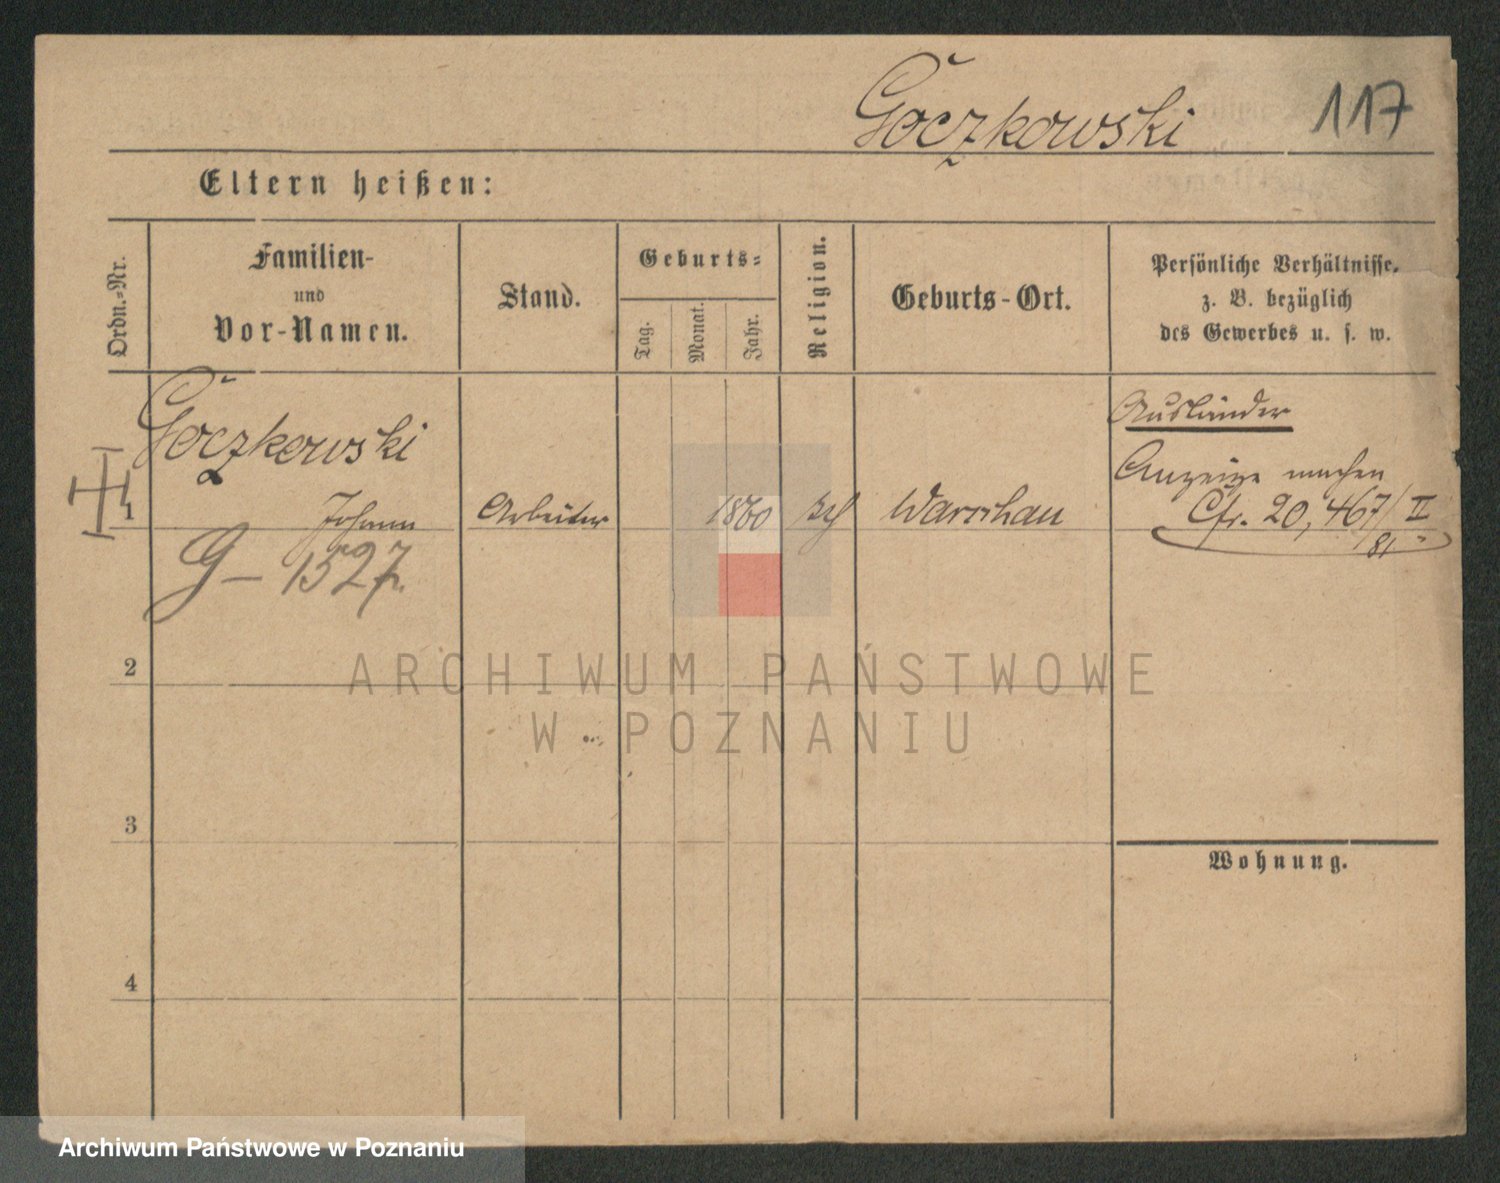 Goczkowski 117
Eltern heißen:
Ordn.-Nr.
Familien-
und
Vor-Namen.
Stand.
Geburts-
Tag.
Monat.
Jahr.
Religion.
Geburts-Ort.
Persönliche Verhältnisse,
z. B. bezüglich
des Gewerbes u. s. w.
Goczkowski
1 Johann Arbeiter 1860 Warschau
G - 1527.
Ausländer
Anzeige machen
Cfr. 20,467/II
81
2
3
4
Wohnung.
ARCHIWUM PAŃSTWOWE
W POZNANIU
Archiwum Państwowe w Poznaniu